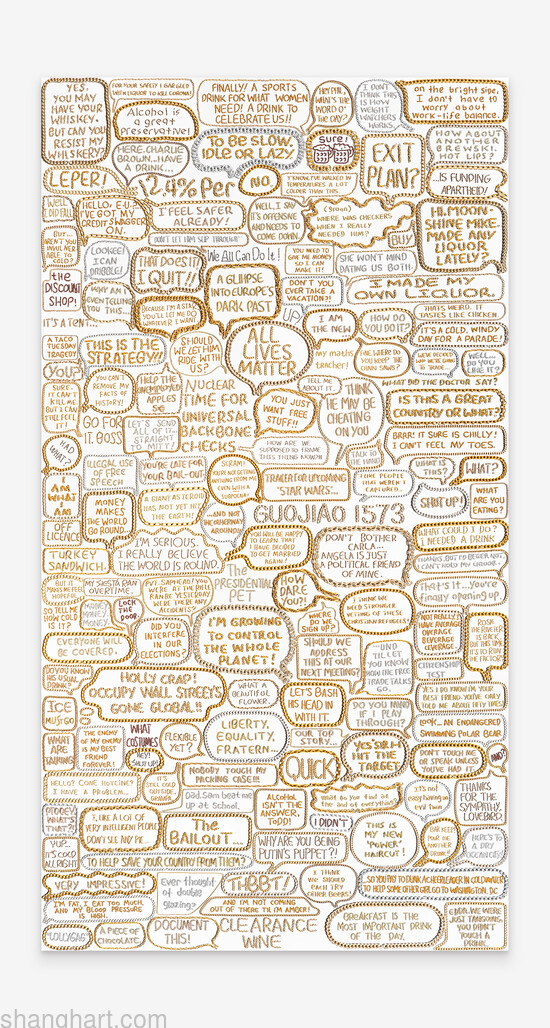 YES,
YOU MAY
HAVE YOUR
WHISKEY,
BUT CAN YOU
RESIST MY
WHISKERY
FOR YOUR SAFETY I GARGLED
WITH LIQUOR TO KILL CORONA!
Alcohol is
a great
preservative!
FINALLY! A SPORTS
DRINK FOR WHAT WOMEN
NEED! A DRINK TO
CELEBRATE US!!
HEY PHIL,
WHAT'S
THE WORD O'
THE DAY?
I DON'T
THINK THIS
IS HOW
WEIGHT
WATCHERS
WORKS
on the bright side,
I don't have to
worry about
work-life balance.
HERE, CHARLIE
BROWN...HAVE
A DRINK...
TO BE SLOW,
IDLE OR LAZY
Sure!
EXIT
PLAN?
HOW ABOUT
ANOTHER
BREWSKI,
HOT LIPS?
LEPER!
12.4% Per
NO.
Y'KNOW, I'VE WALKED IN
TEMPERATURES A LOT
COLDER THAN THIS.
...IS FUNDING
APARTHEID!
WELL,
IT DID FALL
HELLO, E.U.
I'VE GOT A
CREDIT SWAGGER
ON.
I FEEL SAFER
ALREADY!
WELL, I SAY
IT'S OFFENSIVE
AND NEEDS TO
COME DOWN.
(Groan)
WHERE WAS CHECKERS
WHEN I REALLY
NEEDED HIM?
HI, MOON-
SHINE MIKE.
MADE ANY
LIQUOR
LATELY?
BUT...
AREN'T YOU
INVULNER-
ABLE TO
COLD?
LOOKEE!
I CAN
DRIBBLE!
DON'T LET HIM SLIP THROUGH!
We All Can Do It!
BUY
THAT DOES IT!
I QUIT!!
A GLIMPSE
INTO EUROPE'S
DARK PAST
YOU NEED TO
GIVE ME MONEY
SO I CAN
MAKE IT
SHE WON'T MIND
DATING US BOTH.
the
DISCOUNT
SHOP!
WHY AM I
EVEN TELLING
YOU THIS...
DON'T YOU
EVER TAKE A
VACATION?!
I MADE MY
OWN LIQUOR.
BECAUSE I'M A STAR
YOU'LL LET ME DO
WHATEVER I WANT
UP
I AM
THE NEW
HOW DO
YOU DO IT?
THATS WEIRD. IT
TASTES LIKE CHICKEN.
IT'S A TENT...
IT'S A COLD, WINDY
DAY FOR A PARADE!
A TACO
TUESDAY
TRAGEDY
THIS IS THE
STRATEGY!!!
SHOULD
WE LET HIM
RIDE WITH
US?
ALL
LIVES
MATTER
my maths
teacher!
PAL WHERE DO
YOU KEEP THE
CHAIN SAWS?
WE'VE DECIDED
WHO WE'RE GOING
TO TRADE...
WELL...
DO YOU
LIKE IT?
YOU!?
YOU CAN'T
REMOVE MY
FACTS OF
HISTORY!
HELP THE
UNEMPLOYED
APPLES
5¢
NUCLEAR
TIME FOR
UNIVERSAL
BACKBONE
CHECKS
TELL ME
ABOUT IT.
WHAT DID THE DOCTOR SAY?
SURE...
IT CAN'T
KILL ME
BUT I CAN
STILL FEEL
IT!
YOU JUST
WANT FREE
STUFF!!
I THINK
HE MAY BE
CHEATING
ON YOU
IS THIS A GREAT
COUNTRY OR WHAT?
GO FOR
IT, BOSS
LET'S SEND
ALL OF IT
STRAIGHT
TO MIT
BRRR! IT SURE IS CHILLY!
I CAN'T FEEL MY TOES.
HAD
WHAT
HOW ARE WE
SUPPOSED TO FRAME
THIS THING NOW?!!
TALK TO
THE HAND
ILLEGAL USE
OF FREE
SPEECH
YOU'RE LATE FOR
YOUR BAIL-OUT
SCRAM!
YOU'RE NOT GETTING
ANYTHING FROM ME
EVEN WITH A
SUBPOENA!
TRAILER FOR UPCOMING
"STAR WARS...
I LIKE PEOPLE
THAT WEREN'T
CAPTURED.
WHAT IS
THIS?
WHAT?
I AM
WHAT I
AM
MONEY
MAKES THE
WORLD GO
ROUND.
A GIANT ASTEROID
HAS NOT YET HIT
THE EARTH!
SHUT UP!
WHAT
ARE YOU
EATING?
OFF
LICENCE
...AND NOT
THE OTHER WAY
AROUND.
GUOJIAO 1573
I'M SERIOUS.
I REALLY BELIEVE
THE WORLD IS ROUND.
YOU WILL BE HAPPY
TO LEARN THAT
I HAVE DECIDED
TO GET MARRIED
AGAIN!
DON'T BOTHER
CARLA...
ANGELA IS JUST
A POLITICAL FRIEND
OF MINE.
WHAT COULD I DO?
I NEEDED A DRINK.
TURKEY
SANDWICH
THANKS, BUT I'D BETTER NOT.
I CAN'T HOLD MY LIQUOR!
BUT IT
MAKES ME FEEL
HOPEFUL
MY SIESTA RAN
OVERTIME.
PST, SARPHED! YOU
WERE AT THE RIFLE
RANGE YESTERDAY
WERE THERE ANY
ACCIDENTS?
The
PRESIDENTIAL
PET
HOW
DARE
YOU?!
That's it...you're
finally opening up.
SO TELL ME
HOW COLD
IS IT?
MORE
FREE
MONEY
LOCK
THE
DOOR
I THINK WE
NEED STRONGER
VETTING OF THESE
CHRISTIAN REFUGEES
DID YOU
INTERFERE
IN OUR
ELECTIONS?
I'M GROWING
TO CONTROL
THE WHOLE
PLANET!
WHERE
DO WE
SIGN UP?
NOT REALLY
YOUR AVERAGE
OVERAGE
BEVERAGE
COVERAGE.
EVERYONE WILL
BE COVERED.
SHOULD WE
ADDRESS
THIS AT OUR
NEXT MEETING?
"UND
TILL LET
YOU KNOW
HOW THE FREE
TRADE TALKS
GO.
CITIZENSHIP
TEST
DO YOU HAVE
HIS USUAL
DRINK?
HOLLY CRAP!
OCCUPY WALL STREET'S
GONE GLOBAL!!
WHAT A
BEAUTIFUL
FLOWER...
LET'S BASH
HIS HEAD IN
WITH IT.
DO YOU MIND
IF I PLAY
THROUGH?
YES I DO KNOW I'M YOUR
BEST FRIEND. YOU'VE ONLY
TOLD ME ABOUT FIFTY TIMES
ICE
MUST GO
LOOK... AN ENDANGERED
SWIMMING POLAR BEAR
WHAT
ARE
TALKING
THE ENEMY
OF MY ENEMY
IS MY BEST
FRIEND
FOREVER!
WHAT
COSTUMES
HEY!
SHUT UP
FLEXIBLE
YET?
LIBERTY,
EQUALITY,
FRATERN...
OUR TOP
STORY...
YES SIR-H
HIT THE
TARGET
DON'T TOUCH ME
OR SPEAK UNLESS
YOU'VE HAD IT...
AND?
HELLO? CODE HOTLINE?
I HAVE A PROBLEM...
IT'S
STILL COLD
OUTSIDE,
GRANDPA
NOBODY TOUCH MY
PACKING CASE!!!
QUICK
Dad, Sam beat me
up at school.
ALCOHOL
ISN'T THE
ANSWER,
TODD!
What do you find at
the end of everything?
it's not
easy having an
evil twin
THANKS
FOR THE
SYMPATHY,
LOVEBIRD
PUDDEY
WHAT'S
THAT?!
I, LIKE A LOT OF
VERY INTELLIGENT PEOPLE
DON'T SEE ANY PIE
The
BAILOUT...
I DIDN'T
THIS IS
MY NEW
"POWER"
HAIRCUT!
BARKEEP
POUR ME
ANOTHER
DRINK!
HERE'S TO
A DRY
OCEAN CITY!
YUP...
IT'S COLD
ALLRIGHT
WHY ARE YOU BEING
PUTIN'S PUPPET?!
TO HELP SAVE YOUR COUNTRY FROM THEM?
VERY IMPRESSIVE!
Ever thought
of double
glazing?
THBBT!
I THINK
WE SHOULD
EACH TRY
OTHER BARS
SO YOU TRY TO DUNK A CHEERLEADER IN COLD WATER
TO HELP SOME OTHER GIRL GO TO WASHINGTON, DC
I'M FAT, I EAT TOO MUCH,
AND MY BLOOD PRESSURE
IS HIGH.
AND I'M NOT COMING
OUT OF THERE TIL I'M AMBER!
BREAKFAST IS THE
MOST IMPORTANT DRINK
OF THE DAY.
EDDA, WE WERE
JUST TANGOING.
YOU DIDN'T
TOUCH A
DRINK
"LOLLYGAG
A PIECE OF
CHOCOLATE
DOCUMENT
THIS!
CLEARANCE
WINE
shanghart.com